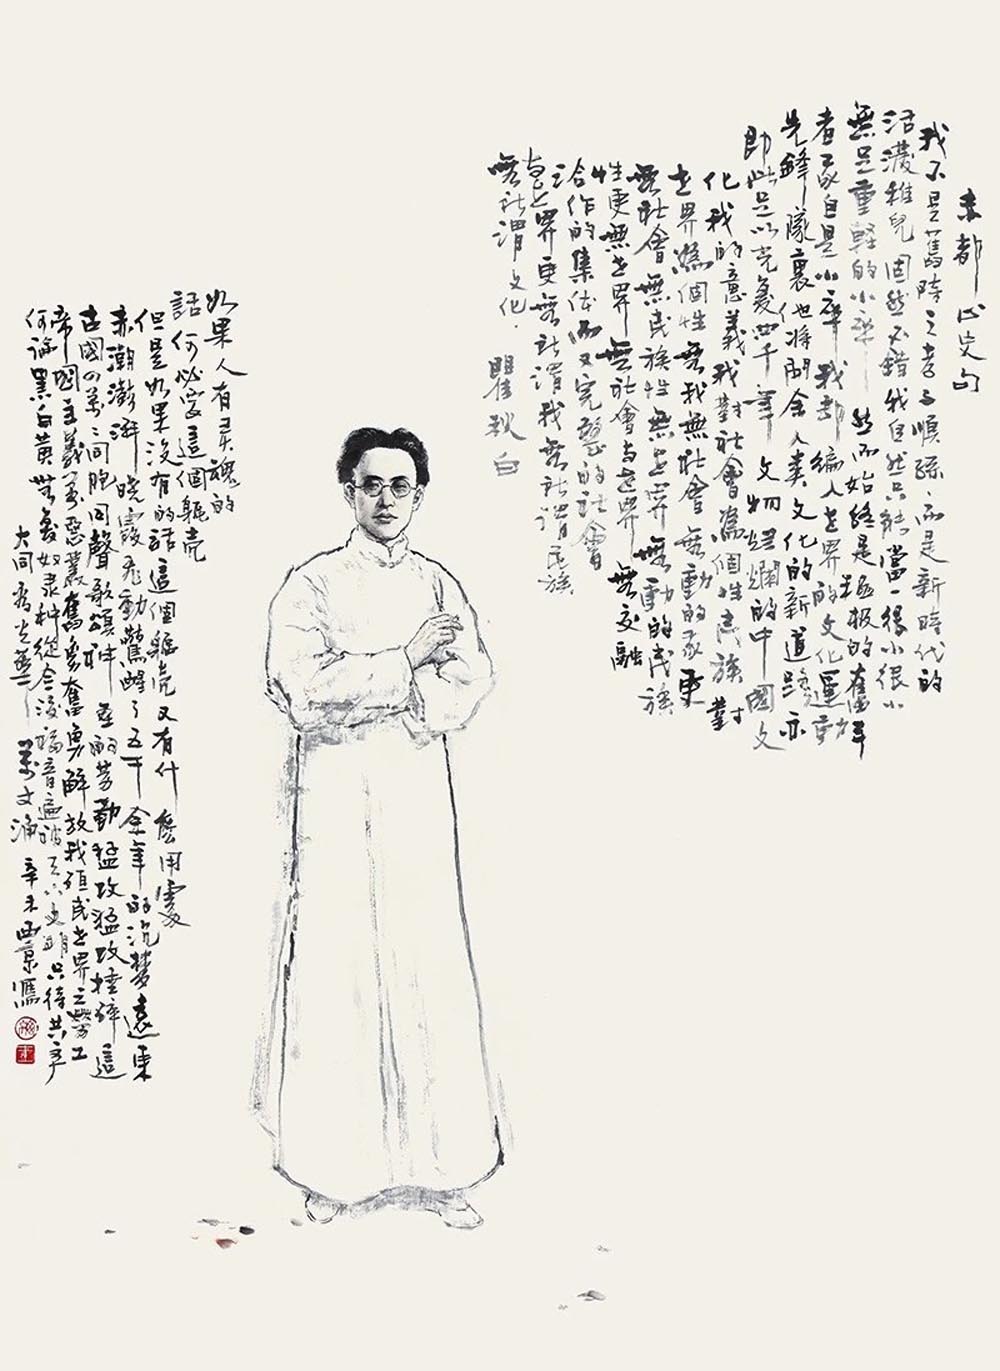 赤都心史句
我不是舊時之孝子順孫、而是新時代的
活潑稚兒 固然不錯 我自然只能當一很小很小
無足重輕的小卒 然而始終是積極的奮鬥
者 我自是小卒 我卻編入世界的文化運動
先鋒隊裏 他將開全人類文化的新道路 亦
即此足以光復四千年 文物燦爛的中國文
化 我的意義 我對社會為個性 民族 對
世界為個性 無我無社會 無動的我更
無社會 無民族性 無世界 無動的民族
性更無世界 無社會與世界 無交融
合作的集体而又完整的社會
與世界更無所謂我 無所謂民族
無所謂文化. 瞿秋白
如果人有灵魂的
話 何必要這個軀壳
但是如果沒有的話 這個軀壳又有什麼用處
赤潮澎湃 曉霞飛動 驚醒了五千余年的沉夢 遠東
古國四萬萬同胞 同聲歌頌神聖的勞動 猛攻猛攻 捶碎這
帝國主義萬惡叢 奮勇奮勇 解放我殖民世界之勞工
何論黑白黃 無復奴隸種 從今後福音遍被 天下文明 只待共產
大同 看光華萬丈涌 辛未西京